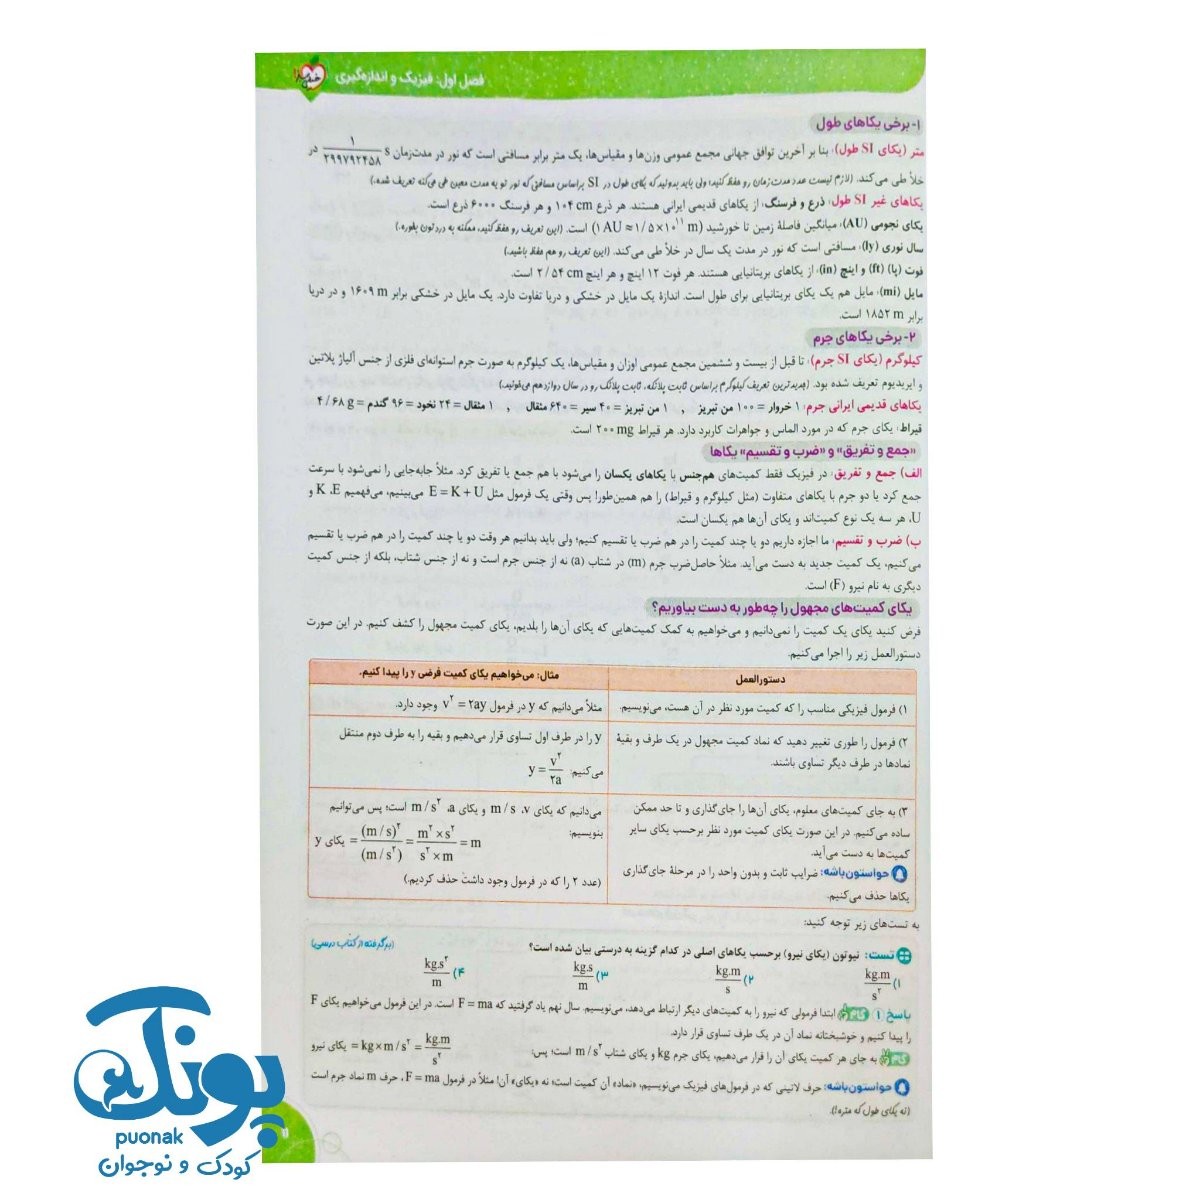 فصل اول: فیزیک و اندازه‌گیری
۱- برخی یکاهای طول
متر (یکای SI طول): بنا بر آخرین توافق جهانی مجمع عمومی وزن‌ها و مقیاس‌ها، یک متر برابر مسافتی است که نور در مدت‌زمان ۱/۲۹۹۷۹۲۴۵۸ s در
خلأ طی می‌کند. (لازم نیست عدد مدت زمان رو حفظ کنید؛ ولی باید بدونید که یکای طول در SI براساس مسافتی که نور تو یه مدت معین طی می‌کنه تعریف شده.)
یکاهای غیر SI طول: ذرع و فرسنگ: از یکاهای قدیمی ایرانی هستند. هر ذرع ۱۰۴ cm و هر فرسنگ ۶۰۰۰ ذرع است.
یکای نجومی (AU): میانگین فاصلهٔ زمین تا خورشید (۱ AU ≈ ۱/۵×۱۰¹¹ m) است. (این تعریف رو حفظ کنید، ممکنه به دردتون بخوره.)
سال نوری (ly): مسافتی است که نور در مدت یک سال در خلأ طی می‌کند. (این تعریف رو هم حفظ باشید.)
فوت (پا) (ft) و اینچ (in): از یکاهای بریتانیایی هستند. هر فوت ۱۲ اینچ و هر اینچ ۲/۵۴ cm است.
مایل (mi): مایل هم یک یکای بریتانیایی برای طول است. اندازهٔ یک مایل در خشکی و دریا تفاوت دارد. یک مایل در خشکی برابر ۱۶۰۹ m و در دریا
برابر ۱۸۵۲ m است.
۲- برخی یکاهای جرم
کیلوگرم (یکای SI جرم): تا قبل از بیست و ششمین مجمع عمومی اوزان و مقیاس‌ها، یک کیلوگرم به صورت جرم استوانه‌ای فلزی از جنس آلیاژ پلاتین
و ایریدیوم تعریف شده بود. (جدیدترین تعریف کیلوگرم براساس ثابت پلانکه. ثابت پلانک رو در سال دوازدهم می‌خونید.)
یکاهای قدیمی ایرانی جرم: ۱ خروار = ۱۰۰ من تبریز , ۱ من تبریز = ۴۰ سیر = ۶۴۰ مثقال , ۱ مثقال = ۲۴ نخود = ۹۶ گندم = ۴/۶۸ g
قیراط: یکای جرم که در مورد الماس و جواهرات کاربرد دارد. هر قیراط ۲۰۰ mg است.
«جمع و تفریق» و «ضرب و تقسیم» یکاها
الف) جمع و تفریق: در فیزیک فقط کمیت‌های هم‌جنس با یکاهای یکسان را می‌شود با هم جمع یا تفریق کرد. مثلاً جابه‌جایی را نمی‌شود با سرعت
جمع کرد یا دو جرم با یکاهای متفاوت (مثل کیلوگرم و قیراط) را هم همین‌طور! پس وقتی یک فرمول مثل E = K + U می‌بینیم، می‌فهمیم E، K و
U، هر سه یک نوع کمیت‌اند و یکای آن‌ها هم یکسان است.
ب) ضرب و تقسیم: ما اجازه داریم دو یا چند کمیت را در هم ضرب یا تقسیم کنیم؛ ولی باید بدانیم هر وقت دو یا چند کمیت را در هم ضرب یا تقسیم
می‌کنیم، یک کمیت جدید به دست می‌آید. مثلاً حاصل‌ضرب جرم (m) در شتاب (a) نه از جنس جرم است و نه از جنس شتاب، بلکه از جنس کمیت
دیگری به نام نیرو (F) است.
یکای کمیت‌های مجهول را چه‌طور به دست بیاوریم؟
فرض کنید یکای یک کمیت را نمی‌دانیم و می‌خواهیم به کمک کمیت‌هایی که یکای آن‌ها را بلدیم، یکای کمیت مجهول را کشف کنیم. در این صورت
دستورالعمل زیر را اجرا می‌کنیم.
دستورالعمل
مثال: می‌خواهیم یکای کمیت فرضی y را پیدا کنیم.
۱) فرمول فیزیکی مناسب را که کمیت مورد نظر در آن هست، می‌نویسیم.
مثلاً می‌دانیم که y در فرمول v² = ۲ay وجود دارد.
۲) فرمول را طوری تغییر دهید که نماد کمیت مجهول در یک طرف و بقیهٔ
نمادها در طرف دیگر تساوی باشند.
y را در طرف اول تساوی قرار می‌دهیم و بقیه را به طرف دوم منتقل
می‌کنیم: y = v²/۲a
۳) به جای کمیت‌های معلوم، یکای آن‌ها را جای‌گذاری و تا حد ممکن
ساده می‌کنیم. در این صورت یکای کمیت مورد نظر برحسب یکای سایر
کمیت‌ها به دست می‌آید.
حواستون‌باشه: ضرایب ثابت و بدون واحد را در مرحلهٔ جای‌گذاری
یکاها حذف می‌کنیم.
می‌دانیم که یکای v، m/s و یکای a، m/s² است؛ پس می‌توانیم
بنویسیم:
یکای y = (m/s)²/(m/s²) = m²×s²/s²×m = m
(عدد ۲ را که در فرمول وجود داشت حذف کردیم.)
به تست‌های زیر توجه کنید:
تست: نیوتون (یکای نیرو) برحسب یکاهای اصلی در کدام گزینه به درستی بیان شده است؟ (برگرفته از کتاب درسی)
۱) kg.m/s² ۲) kg.m/s ۳) kg.s/m ۴) kg.s²/m
پاسخ ۱ گام۱ ابتدا فرمولی که نیرو را به کمیت‌های دیگر ارتباط می‌دهد، می‌نویسیم. سال نهم یاد گرفتید که F = ma است. در این فرمول می‌خواهیم یکای F
را پیدا کنیم و خوشبختانه نماد آن در یک طرف تساوی قرار دارد.
گام۲ به جای هر کمیت یکای آن را قرار می‌دهیم، یکای جرم kg و یکای شتاب m/s² است؛ پس: یکای نیرو = kg×m/s² = kg.m/s²
حواستون‌باشه: حرف لاتینی که در فرمول‌های فیزیک می‌نویسیم، «نماد» آن کمیت است؛ نه «یکای» آن! مثلاً در فرمول F = ma، حرف m نماد جرم است
(نه یکای طول که متره!).
۱۱
پونک
puonak
کودک و نوجوان